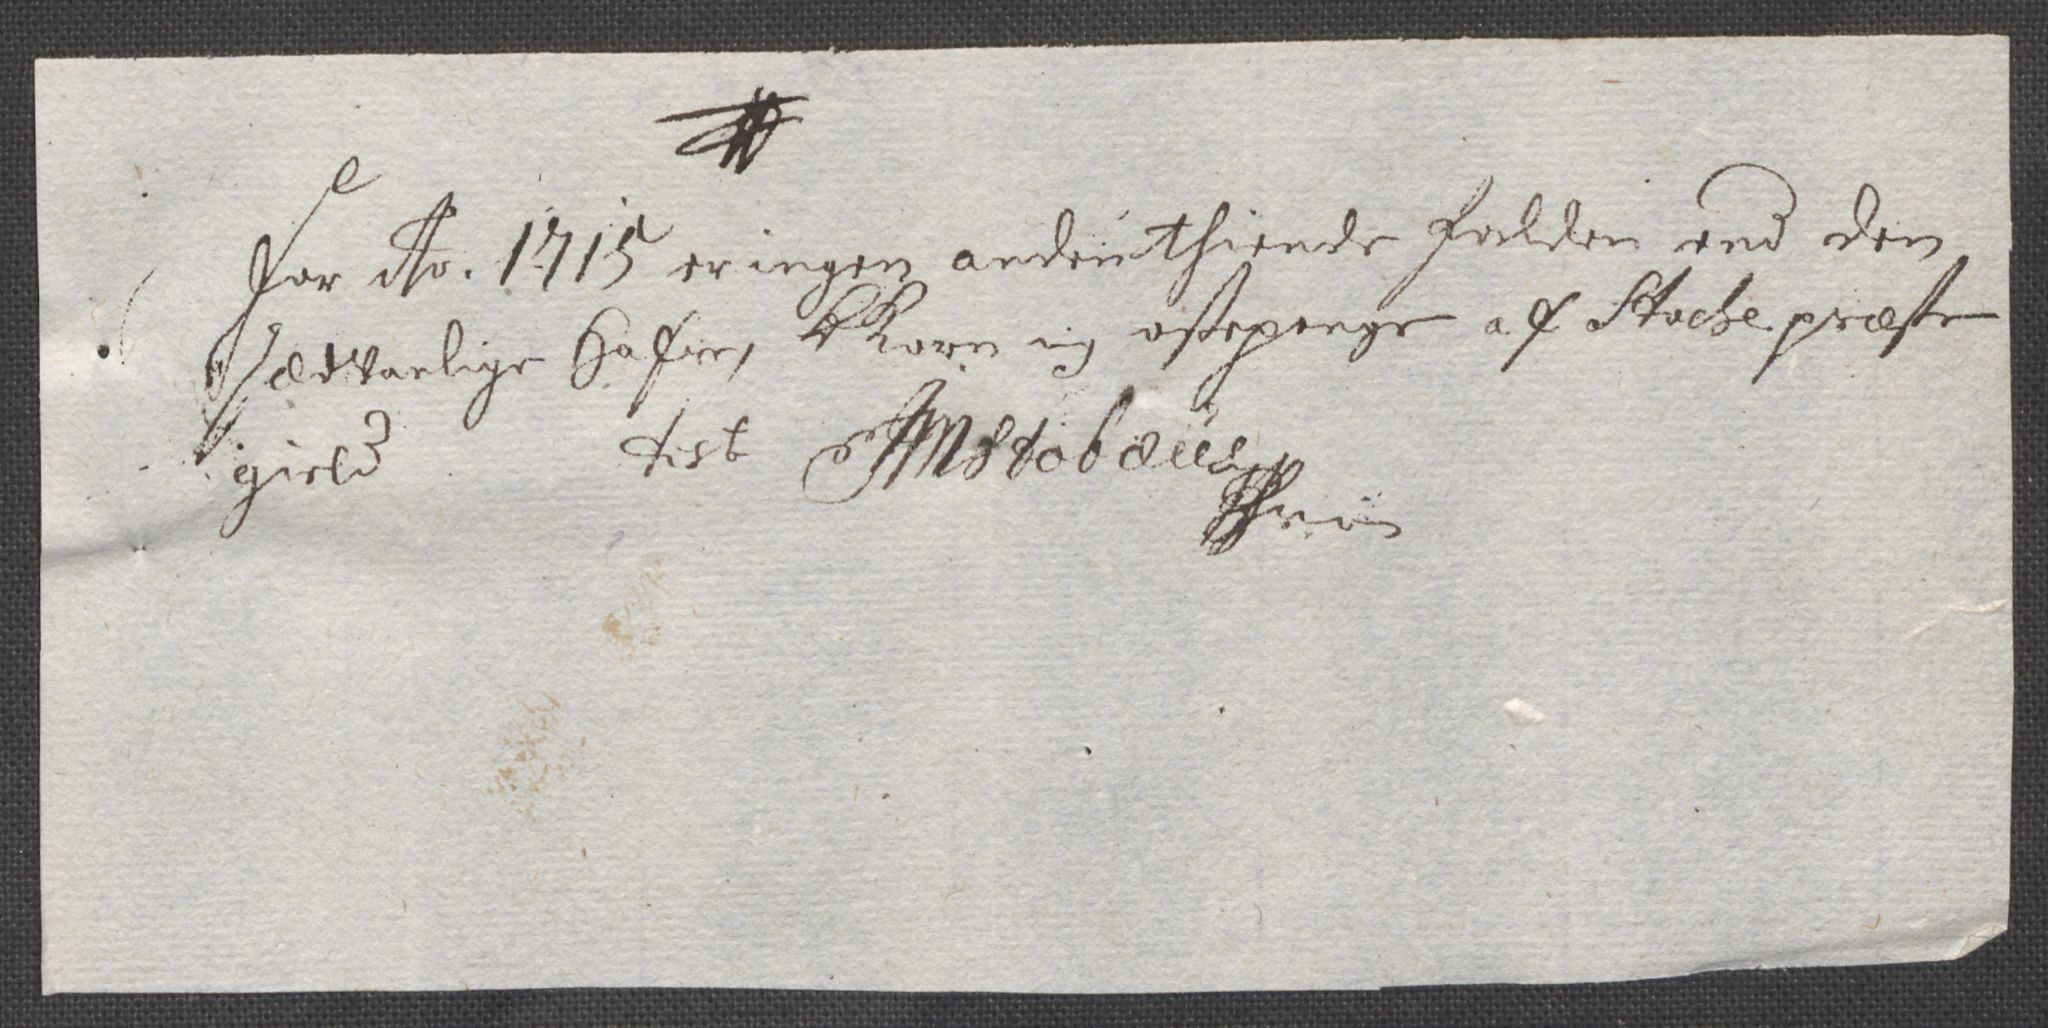 for Ao. 1715 er ingen anden thiende falden end den
Sædvanlige Hafre, Korn og ostepenge af Stoche præste
gield test Stobæus